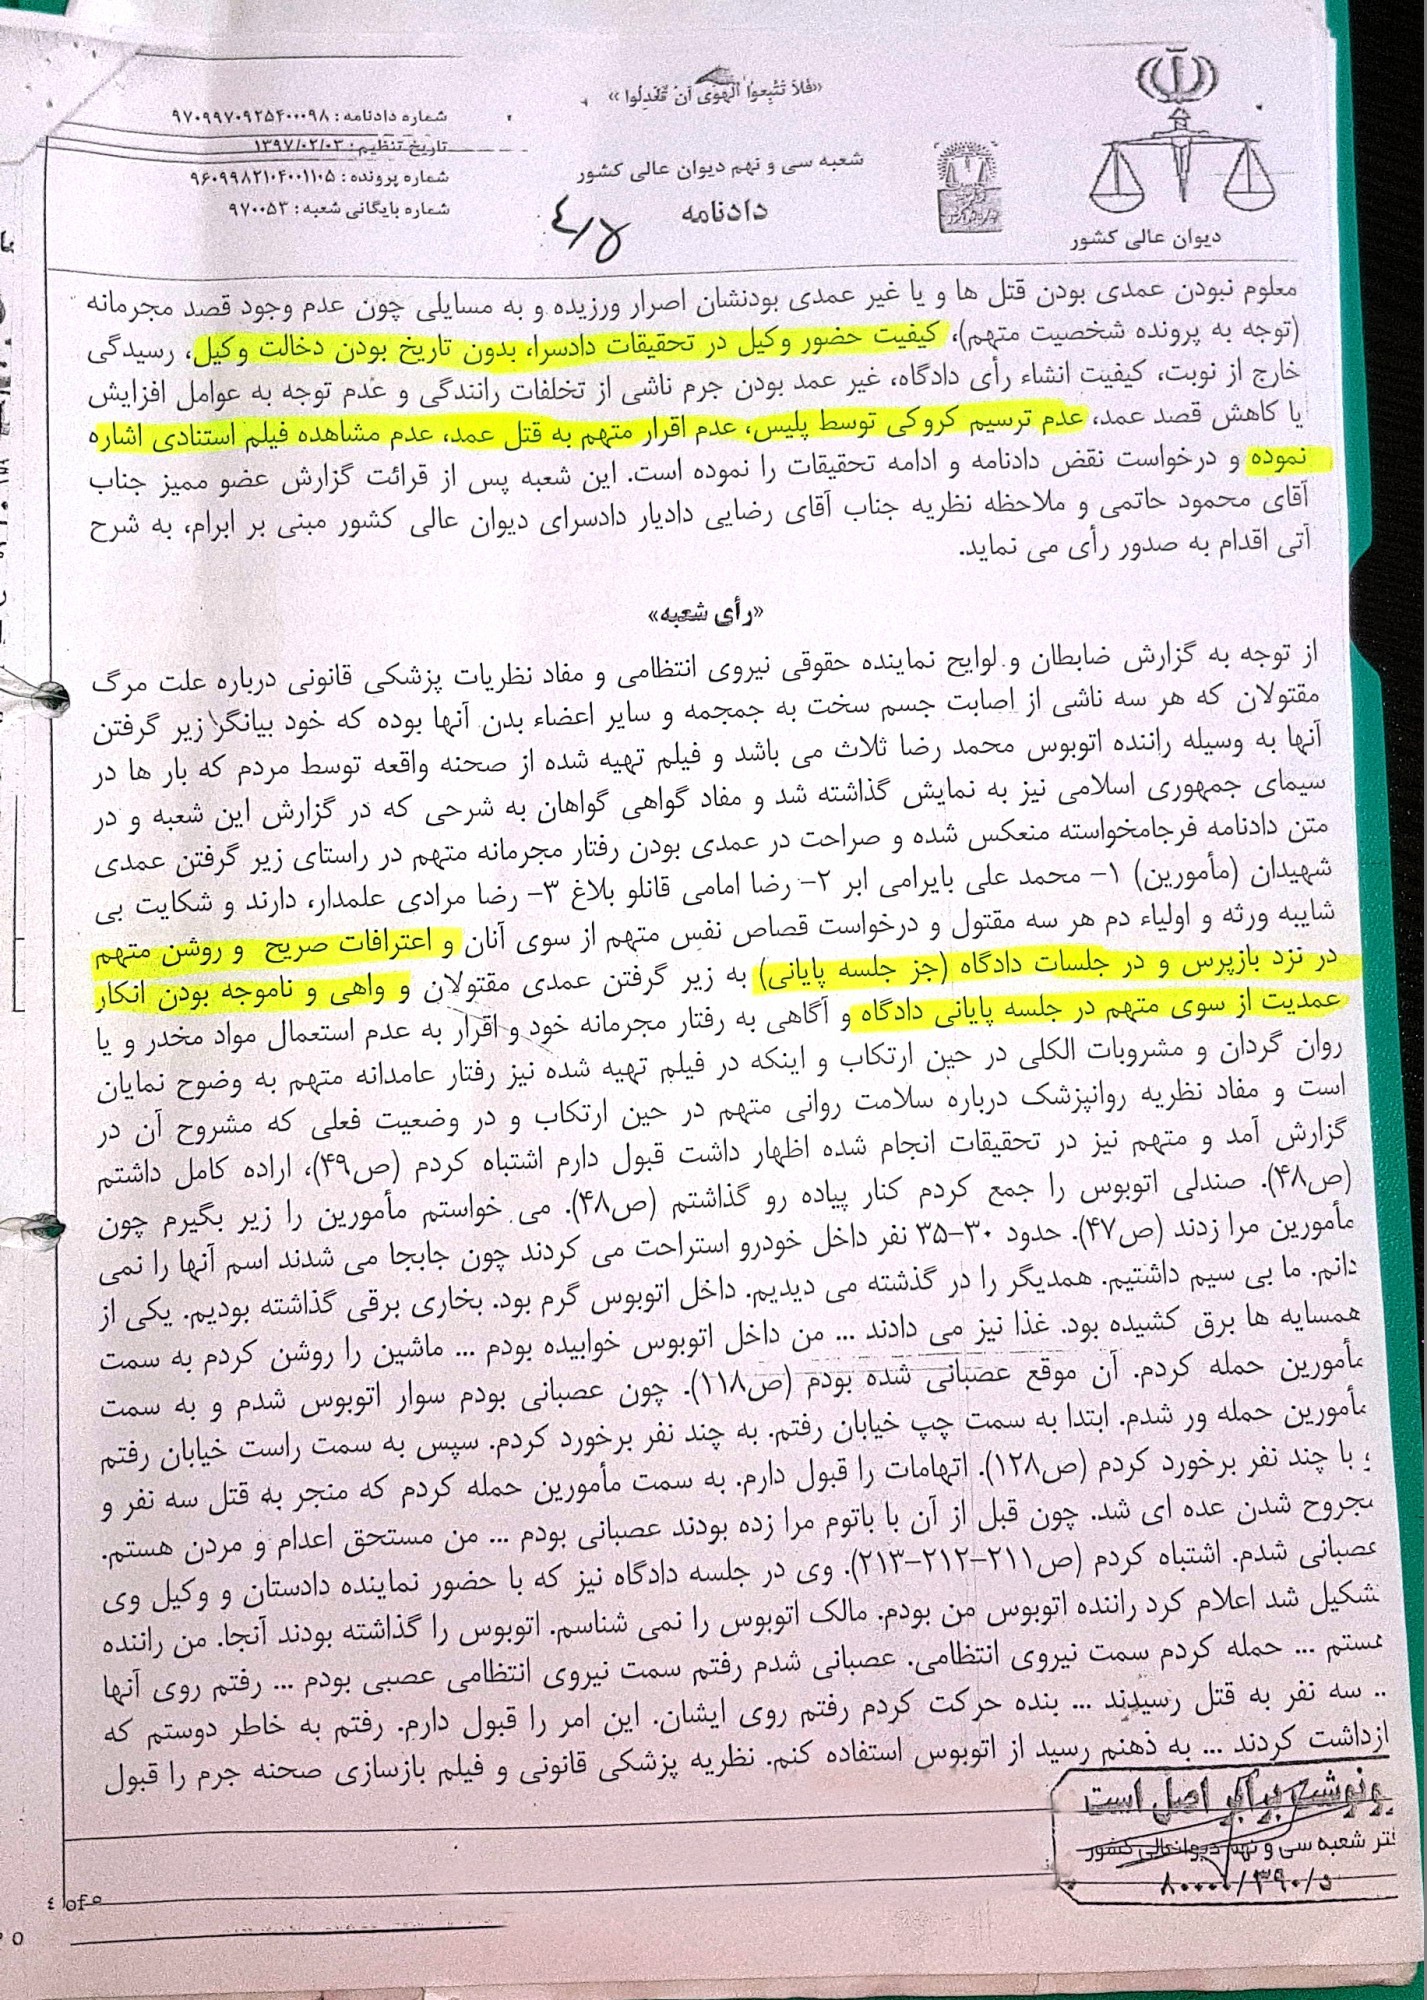 «فَلاَ تَتَّبِعوُا الْهَوَى أَنْ تَعْدِلُوا»
شماره دادنامه : ۹۷۰۹۹۷۰۹۲۵۴۰۰۰۹۸
تاریخ تنظیم : ۱۳۹۷/۰۲/۰۳
شماره پرونده : ۹۶۰۹۹۸۲۱۰۴۰۰۱۱۰۵
شماره بایگانی شعبه : ۹۷۰۰۵۳
شعبه سی و نهم دیوان عالی کشور
دادنامه
دیوان عالی کشور
معلوم نبودن عمدی بودن قتل ها و یا غیر عمدی بودنشان اصرار ورزیده و به مسایلی چون عدم وجود قصد مجرمانه
(توجه به پرونده شخصیت متهم)، کیفیت حضور وکیل در تحقیقات دادسرا، بدون تاریخ بودن دخالت وکیل، رسیدگی
خارج از نوبت، کیفیت انشاء رأی دادگاه، غیر عمد بودن جرم ناشی از تخلفات رانندگی و عدم توجه به عوامل افزایش
یا کاهش قصد عمد، عدم ترسیم کروکی توسط پلیس، عدم اقرار متهم به قتل عمد، عدم مشاهده فیلم استنادی اشاره
نموده و درخواست نقض دادنامه و ادامه تحقیقات را نموده است. این شعبه پس از قرائت گزارش عضو ممیز جناب
آقای محمود حاتمی و ملاحظه نظریه جناب آقای رضایی دادیار دادسرای دیوان عالی کشور مبنی بر ابرام، به شرح
آتی اقدام به صدور رأی می نماید.
«رأی شعبه»
از توجه به گزارش ضابطان و لوایح نماینده حقوقی نیروی انتظامی و مفاد نظریات پزشکی قانونی درباره علت مرگ
مقتولان که هر سه ناشی از اصابت جسم سخت به جمجمه و سایر اعضاء بدن آنها بوده که خود بیانگر زیر گرفتن
آنها به وسیله راننده اتوبوس محمد رضا ثلاث می باشد و فیلم تهیه شده از صحنه واقعه توسط مردم که بار ها در
سیمای جمهوری اسلامی نیز به نمایش گذاشته شد و مفاد گواهی گواهان به شرحی که در گزارش این شعبه و در
متن دادنامه فرجامخواسته منعکس شده و صراحت در عمدی بودن رفتار مجرمانه متهم در راستای زیر گرفتن عمدی
شهیدان (مأمورین) ۱- محمد علی بایرامی ابر ۲- رضا امامی قانلو بلاغ ۳- رضا مرادی علمدار، دارند و شکایت بی
شایبه ورثه و اولیاء دم هر سه مقتول و درخواست قصاص نفس متهم از سوی آنان و اعترافات صریح و روشن متهم
در نزد بازپرس و در جلسات دادگاه (جز جلسه پایانی) به زیر گرفتن عمدی مقتولان و واهی و ناموجه بودن انکار
عمدیت از سوی متهم در جلسه پایانی دادگاه و آگاهی به رفتار مجرمانه خود و اقرار به عدم استعمال مواد مخدر و یا
روان گردان و مشروبات الکلی در حین ارتکاب و اینکه در فیلم تهیه شده نیز رفتار عامدانه متهم به وضوح نمایان
است و مفاد نظریه روانپزشک درباره سلامت روانی متهم در حین ارتکاب و در وضعیت فعلی که مشروح آن در
گزارش آمد و متهم نیز در تحقیقات انجام شده اظهار داشت قبول دارم اشتباه کردم (ص۴۹)، اراده کامل داشتم
(ص۴۸). صندلی اتوبوس را جمع کردم کنار پیاده رو گذاشتم (ص۴۸). می خواستم مأمورین را زیر بگیرم چون
مأمورین مرا زدند (ص۴۷). حدود ۳۰-۳۵ نفر داخل خودرو استراحت می کردند چون جابجا می شدند اسم آنها را نمی
دانم. ما بی سیم داشتیم. همدیگر را در گذشته می دیدیم. داخل اتوبوس گرم بود. بخاری برقی گذاشته بودیم. یکی از
همسایه ها برق کشیده بود. غذا نیز می دادند ... من داخل اتوبوس خوابیده بودم ... ماشین را روشن کردم به سمت
مأمورین حمله کردم. آن موقع عصبانی شده بودم (ص۱۱۸). چون عصبانی بودم سوار اتوبوس شدم و به سمت
مأمورین حمله ور شدم. ابتدا به سمت چپ خیابان رفتم. به چند نفر برخورد کردم. سپس به سمت راست خیابان رفتم
و با چند نفر برخورد کردم (ص۱۲۸). اتهامات را قبول دارم. به سمت مأمورین حمله کردم که منجر به قتل سه نفر و
مجروح شدن عده ای شد. چون قبل از آن با باتوم مرا زده بودند عصبانی بودم ... من مستحق اعدام و مردن هستم.
عصبانی شدم. اشتباه کردم (ص۲۱۱-۲۱۲-۲۱۳). وی در جلسه دادگاه نیز که با حضور نماینده دادستان و وکیل وی
تشکیل شد اعلام کرد راننده اتوبوس من بودم. مالک اتوبوس را نمی شناسم. اتوبوس را گذاشته بودند آنجا. من راننده
هستم ... حمله کردم سمت نیروی انتظامی. عصبانی شدم رفتم سمت نیروی انتظامی عصبی بودم ... رفتم روی آنها
.. سه نفر به قتل رسیدند ... بنده حرکت کردم رفتم روی ایشان. این امر را قبول دارم. رفتم به خاطر دوستم که
ازداشت کردند ... به ذهنم رسید از اتوبوس استفاده کنم. نظریه پزشکی قانونی و فیلم بازسازی صحنه جرم را قبول
رونوشت برابر اصل است
فتر شعبه سی و نهم دیوانعالی کشور
۸۰۰۰۰/۳۹۰/۵
٤ of ٥